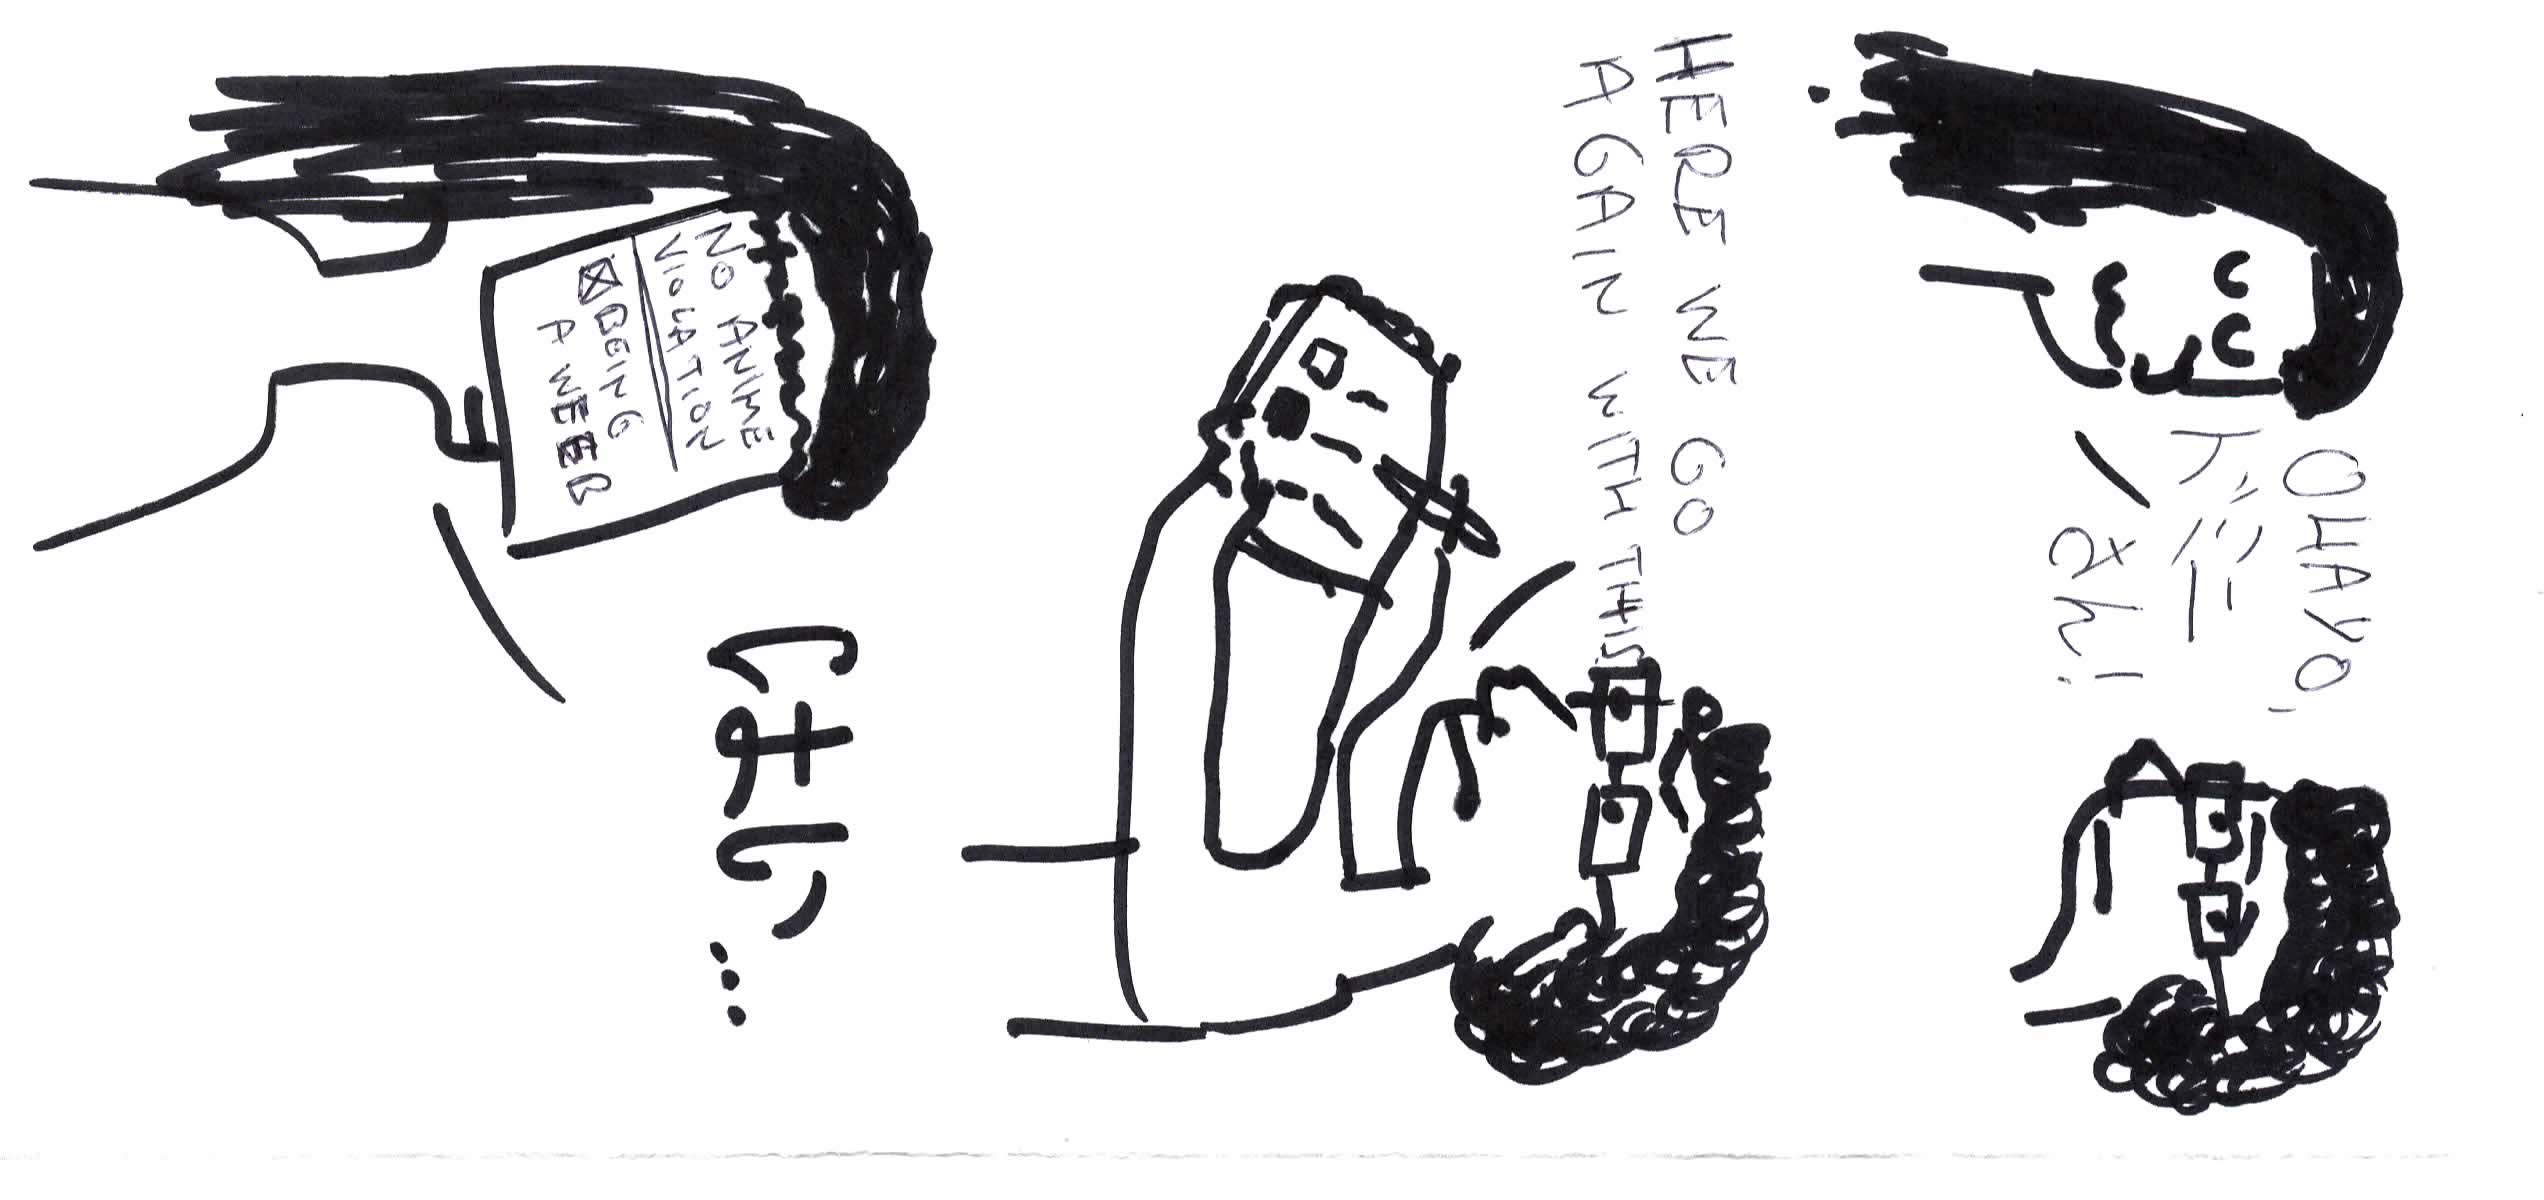 OHAYO,
ドミニ
さん!
HERE WE GO
AGAIN WITH THIS
NO ANIME
VIOLATION
BEING
A WEEB
はい...